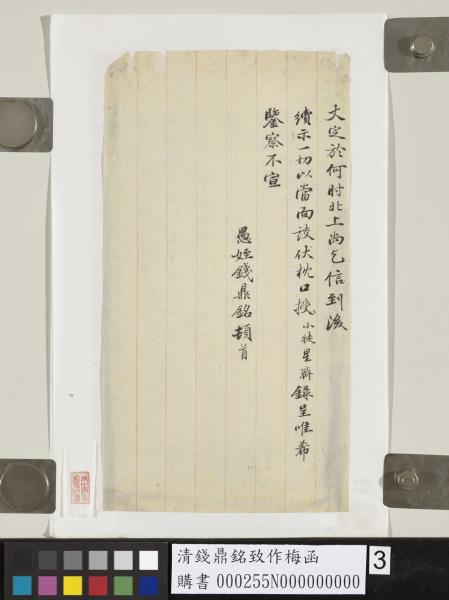 大定於何时北上尚乞信到後
續示一切以當面談伏枕口授小徒星聯錄呈唯希
鑒察不宣
愚姪錢鼎銘頓首
清錢鼎銘致作梅函
購書 000255N000000000
3